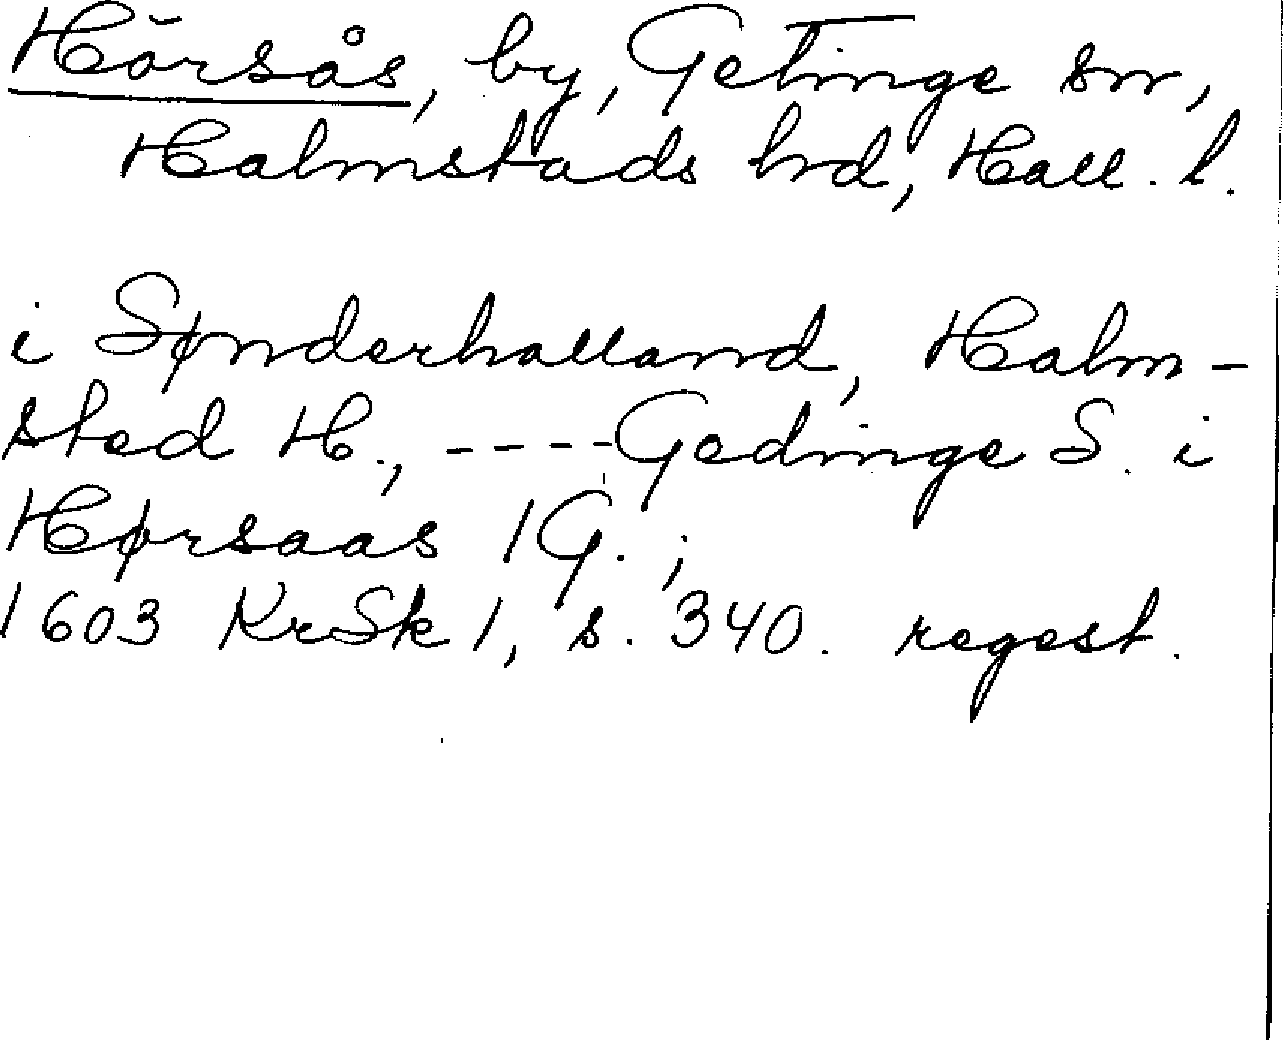 Hörsås, by, Getinge sn,
Halmstads hrd, Hall. l.
i Sønderhalland, Halm-
sted H., ----Gedinge S. i
Hørsaas 1 G. ;
1603 KrSk 1, s. 340. regest.